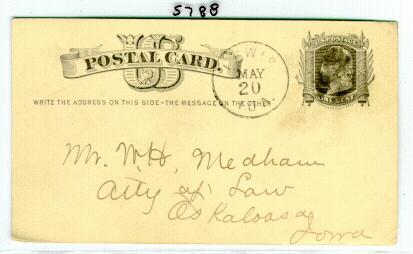 5788
US
POSTAL CARD.
MAY
20
WRITE THE ADDRESS ON THIS SIDE-THE MESSAGE ON THE OTHER
U.S. POSTAGE
ONE CENT
Mr. W.H. Medham
Atty of Law
Oskaloosa
Iowa